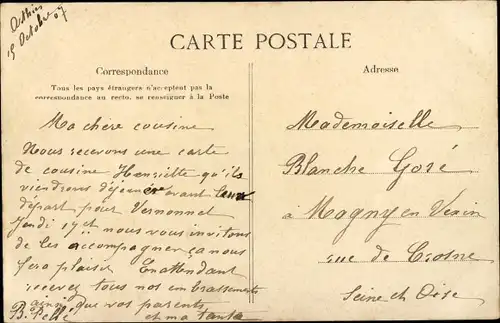 Athies
15 Octobre 07
CARTE POSTALE
Correspondance
Tous les pays étrangers n'acceptent pas la
correspondance au recto, se renseigner à la Poste
Adresse
Ma chère cousine
Nous recevons une carte
de cousine Henriette qu'ils
viendrons déjeuner avant leur
départ pour Vernonnet
Jeudi 17 ct nous vous invitons
de les accompagner ça nous
fera plaisir En attendant
recevez tous nos embrassements
ainsi que vos parents
B. Pellé et ma tante
Mademoiselle
Blanche Goré
à Magny en Vexin
rue de Crosne
Seine et Oise